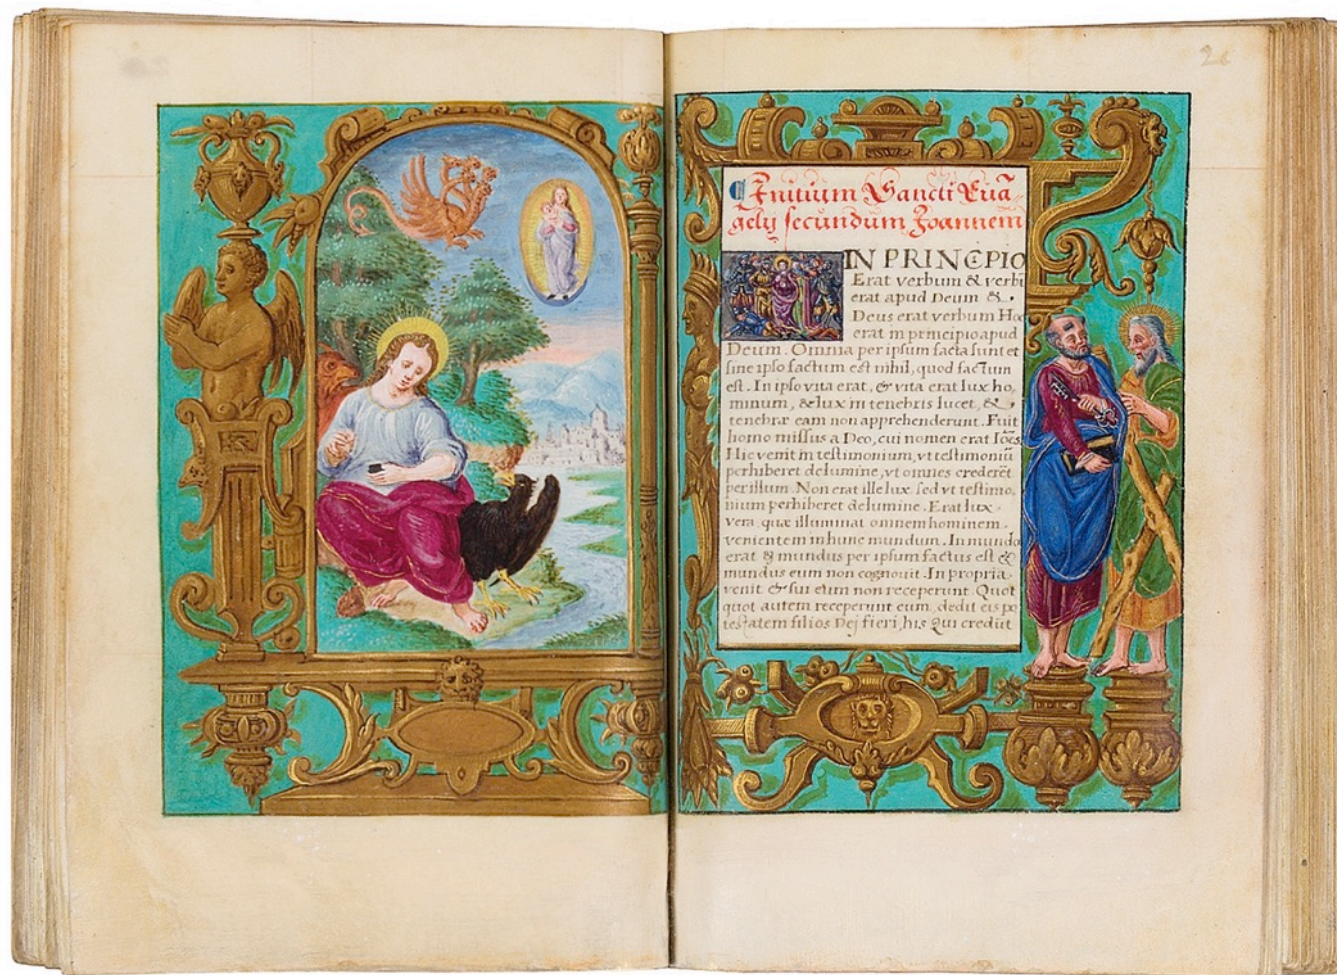 26
Initium Sancti Euā
gely secundum Joannem
IN PRINCIPIO
Erat verbum & verbū
erat apud Deum &
Deus erat verbum Hoc
erat in principio apud
Deum. Omnia per ipsum facta sunt et
sine ipso factum est nihil, quod factum
est. In ipso vita erat, & vita erat lux ho,
minum, & lux in tenebris lucet, &
tenebræ eam non apprehenderunt. Fuit
homo missus a Deo, cui nomen erat Ioēs.
Hic venit in testimonium, vt testimoniū
perhiberet de lumine, vt omnes crederēt
per illum. Non erat ille lux, sed vt testimo,
nium perhiberet de lumine. Erat lux
vera, quæ illuminat omnem hominem
venientem in hunc mundum. In mundo
erat & mundus per ipsum factus est &
mundus eum non cognouit. In propria
venit & sui eum non receperunt. Quot
quot autem receperunt eum, dedit eis po
testatem filios Dej fieri, his Qui credūt